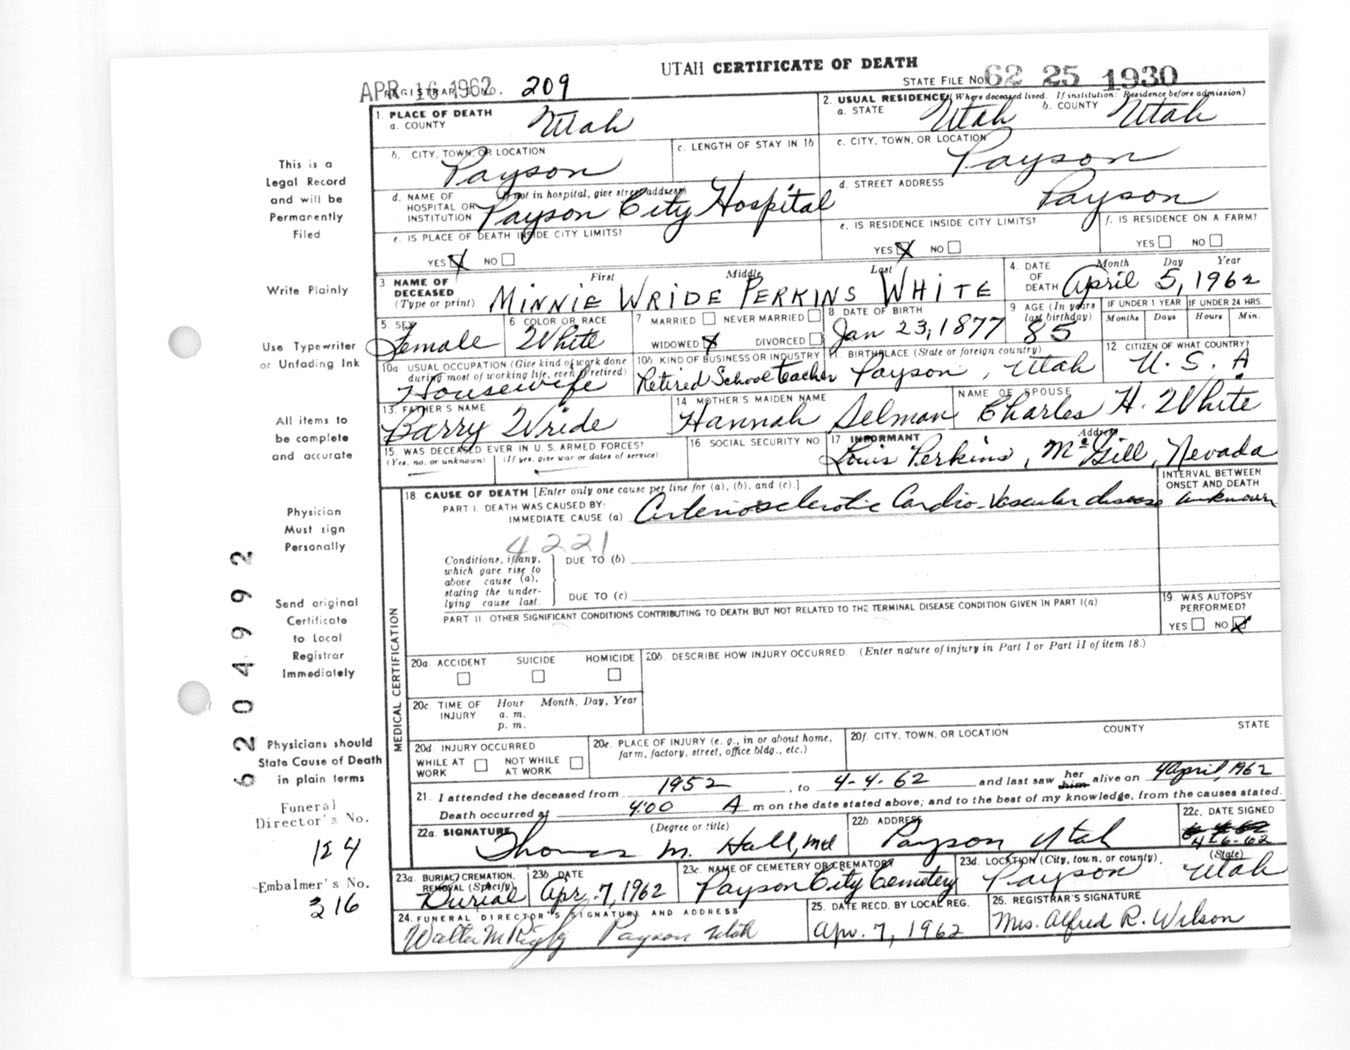 UTAH CERTIFICATE OF DEATH
APR 16 1962
REGISTRAR'S NO. 209
STATE FILE NO. 62 25 1930
1 PLACE OF DEATH
a. COUNTY Utah
2. USUAL RESIDENCE (Where deceased lived. If institution: Residence before admission)
a. STATE Utah b. COUNTY Utah
b. CITY, TOWN, OR LOCATION Payson
c. LENGTH OF STAY IN 1b
c. CITY, TOWN, OR LOCATION Payson
d. NAME OF HOSPITAL OR INSTITUTION (If not in hospital, give street address) Payson City Hospital
d. STREET ADDRESS Payson
e. IS PLACE OF DEATH INSIDE CITY LIMITS?
YES X NO
e. IS RESIDENCE INSIDE CITY LIMITS?
YES X NO
f. IS RESIDENCE ON A FARM?
YES NO
3 NAME OF DECEASED (Type or print)
First Middle Last
MINNIE WRIDE PERKINS WHITE
4. DATE OF DEATH Month Day Year
April 5, 1962
5 SEX Female
6 COLOR OR RACE White
7 MARRIED NEVER MARRIED
WIDOWED X DIVORCED
8 DATE OF BIRTH Jan 23, 1877
9 AGE (In years last birthday) 85
IF UNDER 1 YEAR Months Days
IF UNDER 24 HRS. Hours Min.
10a USUAL OCCUPATION (Give kind of work done during most of working life, even if retired) Housewife
10b KIND OF BUSINESS OR INDUSTRY Retired School teacher
11. BIRTHPLACE (State or foreign country) Payson, Utah
12 CITIZEN OF WHAT COUNTRY? U. S. A
13. FATHER'S NAME Barry Wride
14 MOTHER'S MAIDEN NAME Hannah Selman
NAME OF SPOUSE Charles H. White
15. WAS DECEASED EVER IN U.S. ARMED FORCES?
(Yes, no, or unknown) (If yes, give war or dates of service)
16 SOCIAL SECURITY NO.
17 INFORMANT Address
Louis Perkins, McGill, Nevada
18 CAUSE OF DEATH [Enter only one cause per line for (a), (b), and (c).]
INTERVAL BETWEEN ONSET AND DEATH
PART I. DEATH WAS CAUSED BY:
IMMEDIATE CAUSE (a) Arteriosclerotic Cardio-Vascular disease unknown
4221
Conditions, if any, which gave rise to above cause (a), stating the underlying cause last.
DUE TO (b)
DUE TO (c)
PART II. OTHER SIGNIFICANT CONDITIONS CONTRIBUTING TO DEATH BUT NOT RELATED TO THE TERMINAL DISEASE CONDITION GIVEN IN PART I(a)
19 WAS AUTOPSY PERFORMED?
YES NO X
MEDICAL CERTIFICATION
20a. ACCIDENT SUICIDE HOMICIDE
20b. DESCRIBE HOW INJURY OCCURRED. (Enter nature of injury in Part I or Part II of item 18.)
20c. TIME OF INJURY Hour Month, Day, Year
a. m.
p. m.
20d. INJURY OCCURRED
WHILE AT WORK NOT WHILE AT WORK
20e. PLACE OF INJURY (e. g., in or about home, farm, factory, street, office bldg., etc.)
20f. CITY, TOWN, OR LOCATION COUNTY STATE
21. I attended the deceased from 1952, to 4-4-62 and last saw her him alive on 4 April, 1962
Death occurred at 4:00 A m on the date stated above; and to the best of my knowledge, from the causes stated.
22a. SIGNATURE (Degree or title)
Thomas M. Hall, Md
22b. ADDRESS Payson Utah
22c. DATE SIGNED 4-6-62
23a. BURIAL, CREMATION, REMOVAL (Specify) Burial
23b DATE Apr. 7, 1962
23c. NAME OF CEMETERY OR CREMATORY Payson City Cemetery
23d. LOCATION (City, town, or county) (State)
Payson Utah
24. FUNERAL DIRECTOR'S SIGNATURE AND ADDRESS
Walter M Rigby Payson Utah
25. DATE RECD. BY LOCAL REG. Apr. 7, 1962
26. REGISTRAR'S SIGNATURE Mrs. Alfred R. Wilson
This is a
Legal Record
and will be
Permanently
Filed
Write Plainly
Use Typewriter
or Unfading Ink
All items to
be complete
and accurate
Physician
Must sign
Personally
Send original
Certificate
to Local
Registrar
Immediately
Physicians should
State Cause of Death
in plain terms
Funeral
Director's No.
124
Embalmer's No.
316
6204992